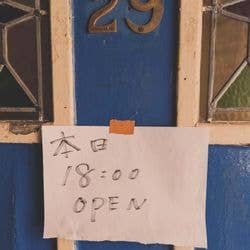 29
本日
18:00
OPEN